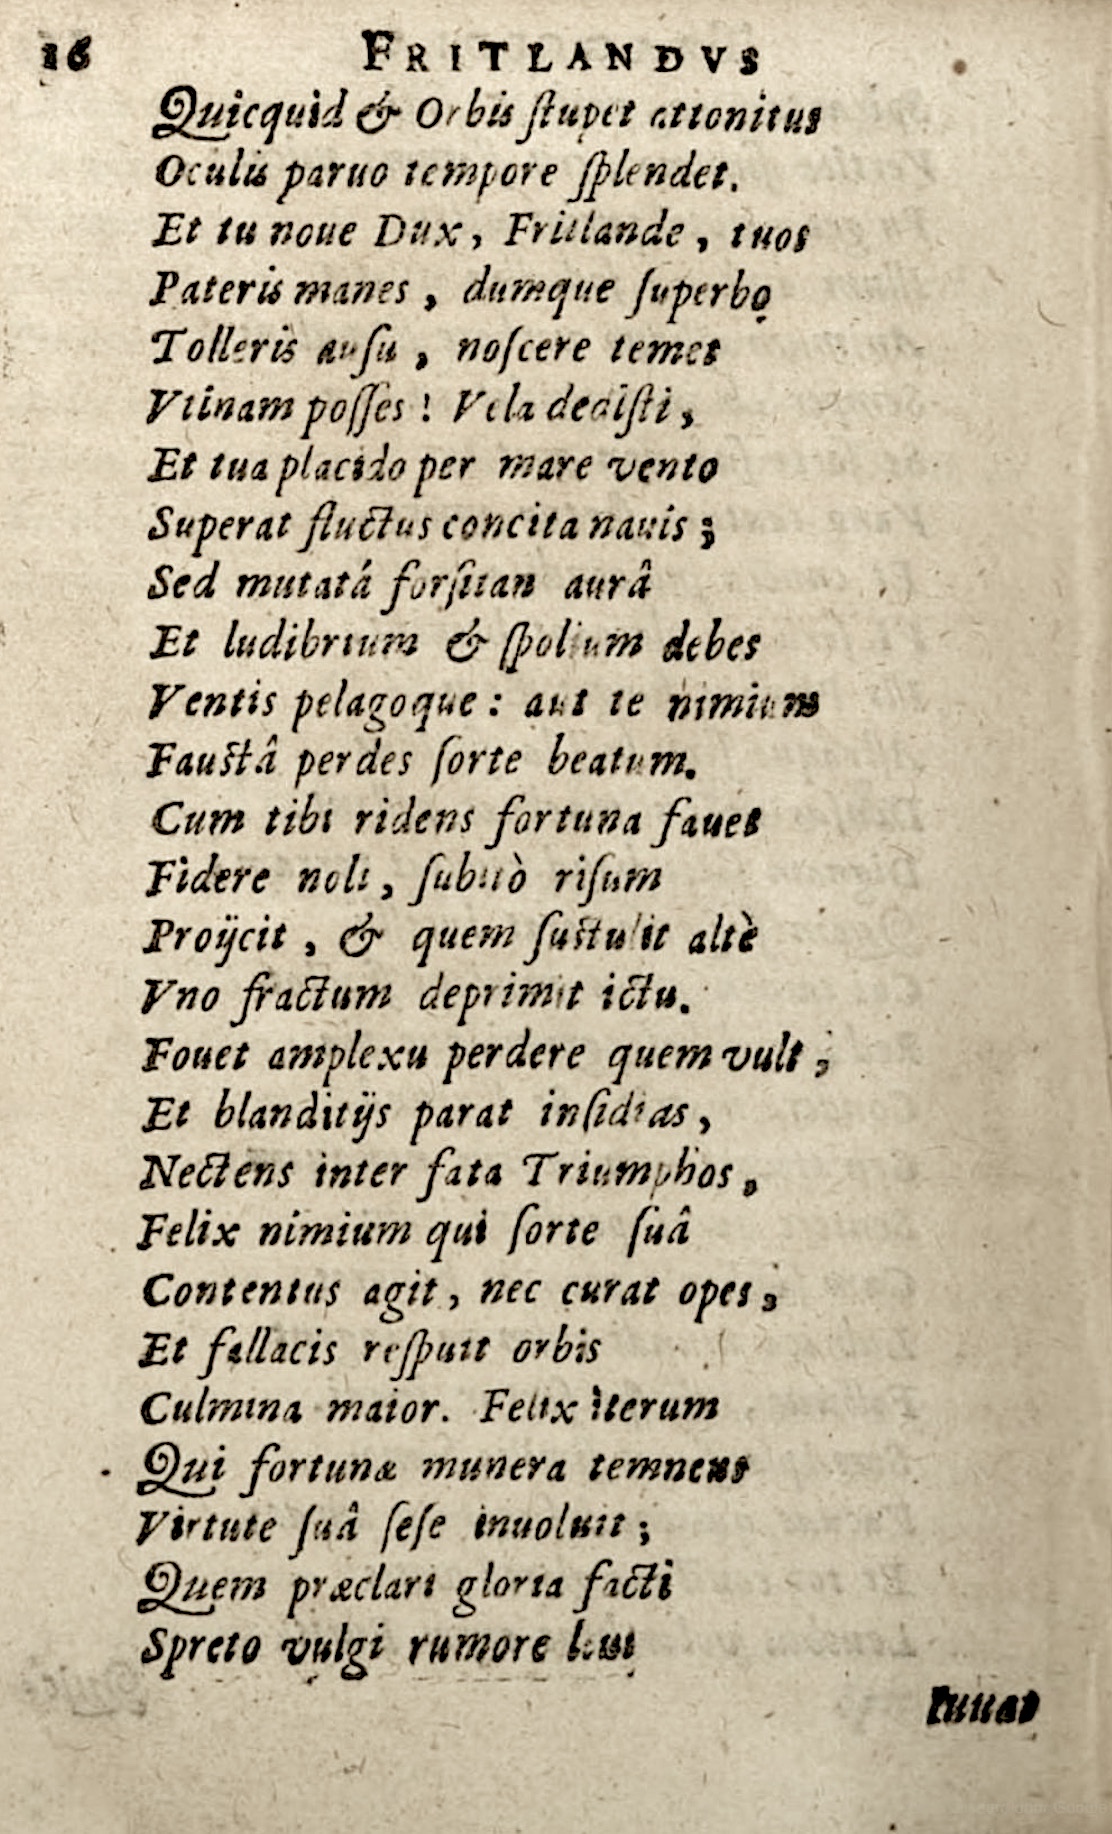 16 FRITLANDVS
Quicquid & Orbis ſtupet attonitus
Oculis paruo tempore ſplendet.
Et tu noue Dux, Fritlande, tuos
Pateris manes, dumque ſuperbo
Tolleris auſu, noſcere temet
Vtinam poſſes! Vela dediſti,
Et tua placido per mare vento
Superat fluctus concita nauis;
Sed mutatâ forſitan aurâ
Et ludibrium & ſpolium debes
Ventis pelagoque: aut te nimium
Fauſtâ perdes ſorte beatum.
Cum tibi ridens fortuna fauet
Fidere noli, ſubitò riſum
Proijcit, & quem ſuſtulit altè
Vno fractum deprimit ictu.
Fouet amplexu perdere quem vult;
Et blanditijs parat inſidias,
Nectens inter fata Triumphos,
Felix nimium qui ſorte ſuâ
Contentus agit, nec curat opes,
Et fallacis reſpuit orbis
Culmina maior. Felix iterum
Qui fortunæ munera temnens
Virtute ſuâ ſeſe inuoluit;
Quem præclari gloria facti
Spreto vulgi rumore leui
Iuuat